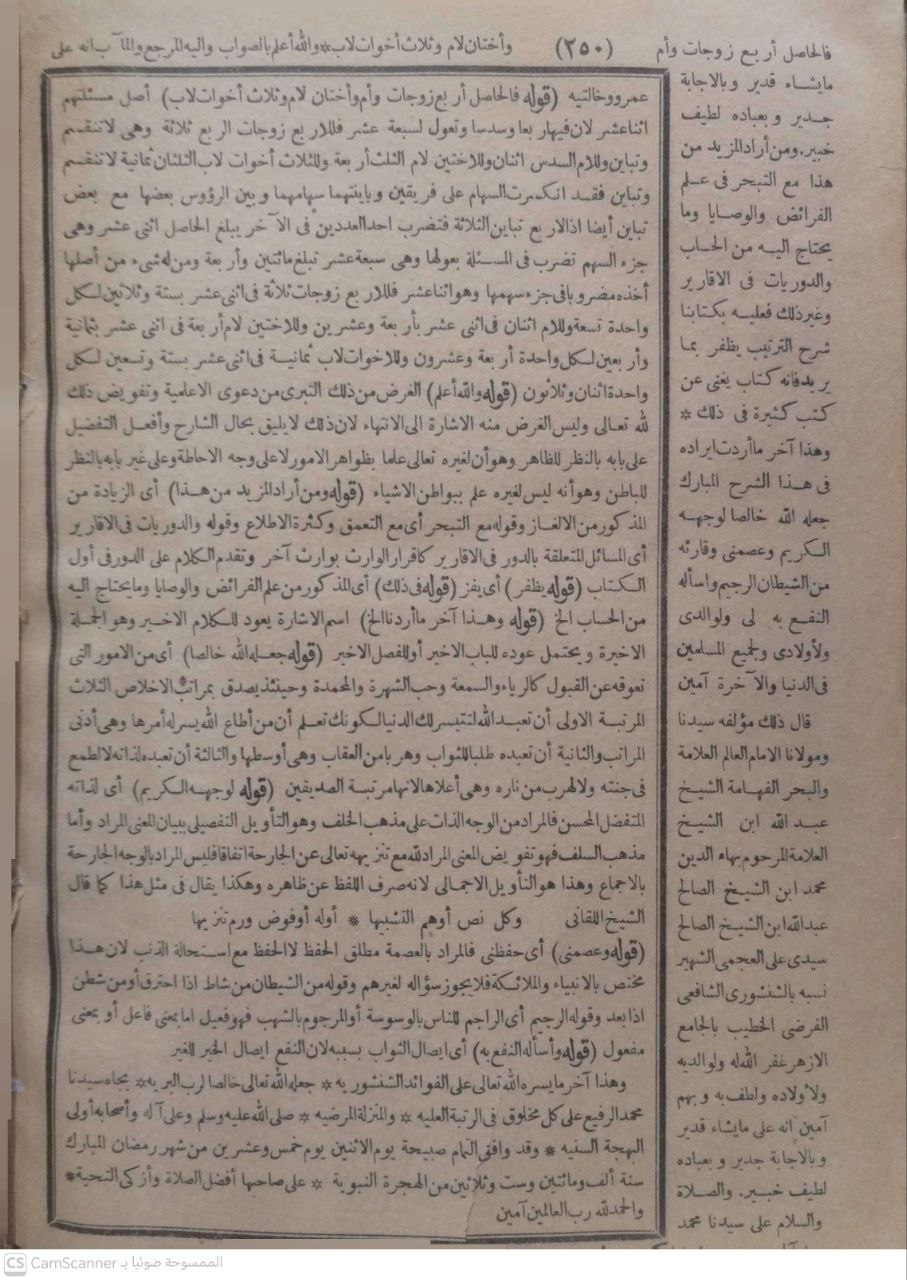 فالحاصل أربع زوجات وأم (٢٥٠) وأختان لام وثلاث أخوات لاب * والله أعلم بالصواب واليه المرجع والمآب انه على
مايشاء قدير وبالاجابة
جدير وبعباده لطيف
خبير. ومن أراد المزيد من
هذا مع التبحر فى علم
الفرائض والوصايا وما
يحتاج اليه من الحساب
والدوريات فى الاقارير
وغير ذلك فعليه بكتابنا
شرح الترتيب يظفر بما
يريد فانه كتاب يغنى عن
كتب كثيرة فى ذلك *
وهذا آخر ما أردت ايراده
فى هذا الشرح المبارك
جعله الله خالصا لوجهه
الكريم وعصمنى وقارئه
من الشيطان الرجيم وأسأله
النفع به لى ولوالدى
ولأولادى ولجميع المسلمين
فى الدنيا والآخرة آمين
قال ذلك مؤلفه سيدنا
ومولانا الامام العالم العلامة
والبحر الفهامة الشيخ
عبد الله ابن الشيخ
العلامة المرحوم بهاء الدين
محمد ابن الشيخ الصالح
عبد الله ابن الشيخ الصالح
سيدى على العجمى الشهير
نسبه بالشنشورى الشافعى
الفرضى الخطيب بالجامع
الازهر غفر الله له ولوالديه
ولأولاده ولطف به وبهم
آمين انه على مايشاء قدير
وبالاجابة جدير وبعباده
لطيف خبير. والصلاة
والسلام على سيدنا محمد
عمرو وخالتيه (قوله فالحاصل أربع زوجات وأم وأختان لام وثلاث أخوات لاب) أصل مسئلتهم
اثنا عشر لان فيها ربعا وسدسا وتعول لسبعة عشر فللاربع زوجات الربع ثلاثة وهى لاتنقسم
وتباين وللام السدس اثنان وللاختين لام الثلث أربعة وللثلاث أخوات لاب الثلثان ثمانية لاتنقسم
وتباين فقد انكسرت السهام على فريقين وباينتهما سهامهما وبين الرؤوس بعضها مع بعض
تباين أيضا اذ الاربع تباين الثلاثة فتضرب احد العددين فى الآخر يبلغ الحاصل اثنى عشر وهى
جزء السهم تضرب فى المسئلة بعولها وهى سبعة عشر تبلغ مائتين وأربعة ومن له شىء من أصلها
أخذه مضروبا فى جزء سهمها وهو اثنا عشر فللاربع زوجات ثلاثة فى اثنى عشر بستة وثلاثين لكل
واحدة تسعة وللام اثنان فى اثنى عشر بأربعة وعشرين وللاختين لام أربعة فى اثنى عشر بثمانية
وأربعين لكل واحدة أربعة وعشرون وللاخوات لاب ثمانية فى اثنى عشر بستة وتسعين لكل
واحدة اثنان وثلاثون (قوله والله أعلم) الغرض من ذلك التبرى من دعوى الاعلمية وتفويض ذلك
لله تعالى وليس الغرض منه الاشارة الى الانتهاء لان ذلك لايليق بحال الشارح وأفعل التفضيل
على بابه بالنظر للظاهر وهو أن لغيره تعالى علما بظواهر الامور لا على وجه الاحاطة وعلى غير بابه بالنظر
للباطن وهو أنه ليس لغيره علم ببواطن الاشياء (قوله ومن أراد المزيد من هذا) أى الزيادة من
المذكور من الالغاز وقوله مع التبحر أى مع التعمق وكثرة الاطلاع وقوله والدوريات فى الاقارير
أى المسائل المتعلقة بالدور فى الاقارير كاقرار الوارث بوارث آخر وتقدم الكلام على الدور فى أول
الكتاب (قوله يظفر) أى يفز (قوله فى ذلك) أى المذكور من علم الفرائض والوصايا ومايحتاج اليه
من الحساب الخ (قوله وهذا آخر ما أردنا الخ) اسم الاشارة يعود للكلام الاخير وهو الجملة
الاخيرة ويحتمل عوده للباب الاخير أو للفصل الاخير (قوله جعله الله خالصا) أى من الامور التى
تعوقه عن القبول كالرياء والسمعة وحب الشهرة والمحمدة وحينئذ يصدق بمراتب الاخلاص الثلاث
المرتبة الاولى أن تعبد الله لتتيسر لك الدنيا لكونك تعلم أن من أطاع الله يسر له أمرها وهى أدنى
المراتب والثانية أن تعبده طلبا للثواب وهربا من العقاب وهى أوسطها والثالثة أن تعبده لذاته لا لطمع
فى جنته ولا لهرب من ناره وهى أعلاها لانها مرتبة الصديقين (قوله لوجهه الكريم) أى لذاته
المتفضل المحسن فالمراد من الوجه الذات على مذهب الخلف وهو التأويل التفصيلى ببيان المعنى المراد وأما
مذهب السلف فهو تفويض المعنى المراد لله مع تنزيهه تعالى عن الجارحة اتفاقا فليس المراد بالوجه الجارحة
بالاجماع وهذا هو التأويل الاجمالى لانه صرف اللفظ عن ظاهره وهكذا يقال فى مثل هذا كما قال
الشيخ اللقانى وكل نص أوهم التشبيها * أوله أو فوض ورم تنزيها
(قوله وعصمنى) أى حفظنى فالمراد بالعصمة مطلق الحفظ لا الحفظ مع استحالة الذنب لان هذا
مختص بالانبياء والملائكة فلا يجوز سؤاله لغيرهم وقوله من الشيطان من شاط اذا احترق أو من شطن
اذا بعد وقوله الرجيم أى الراجم للناس بالوسوسة أو المرجوم بالشهب فهو فعيل اما بمعنى فاعل أو بمعنى
مفعول (قوله وأسأله النفع به) أى ايصال الثواب بسببه لان النفع ايصال الخير للغير
وهذا آخر مايسره الله تعالى على الفوائد الشنشوريه * جعله الله تعالى خالصا لرب البريه * بجاه سيدنا
محمد الرفيع على كل مخلوق فى الرتبة العليه * والمنزلة المرضيه * صلى الله عليه وسلم وعلى آله وأصحابه أولى
البهجة السنيه * وقد وافق التمام صبيحة يوم الاثنين يوم خمس وعشرين من شهر رمضان المبارك
سنة ألف ومائتين وست وثلاثين من الهجرة النبوية * على صاحبها أفضل الصلاة وأزكى التحية *
والحمد لله رب العالمين آمين
CS CamScanner الممسوحة ضوئيا بـ